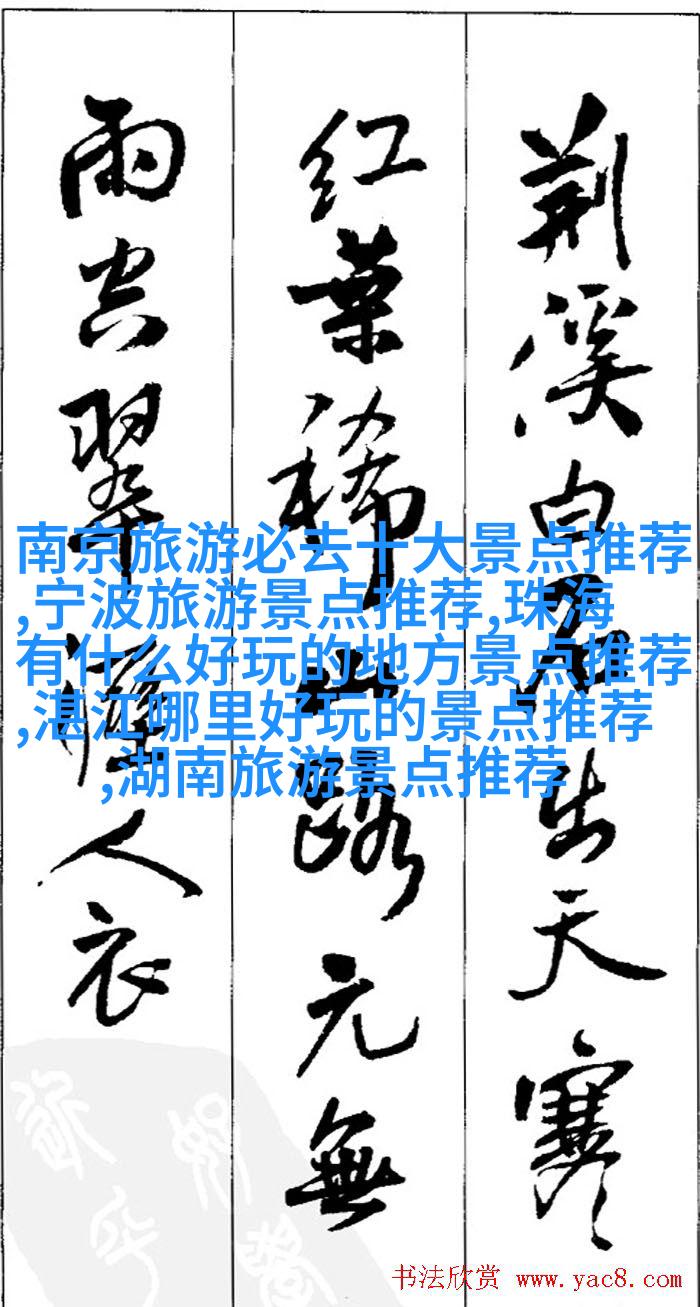 荆溪白石出天寒
红葉稀山路元無
雨空翠濕人衣
南京旅游必去十大景点推荐
,宁波旅游景点推荐,珠海
有什么好玩的地方景点推荐
,湛江哪里好玩的景点推荐
,湖南旅游景点推荐
书法欣赏 www.yac8.com